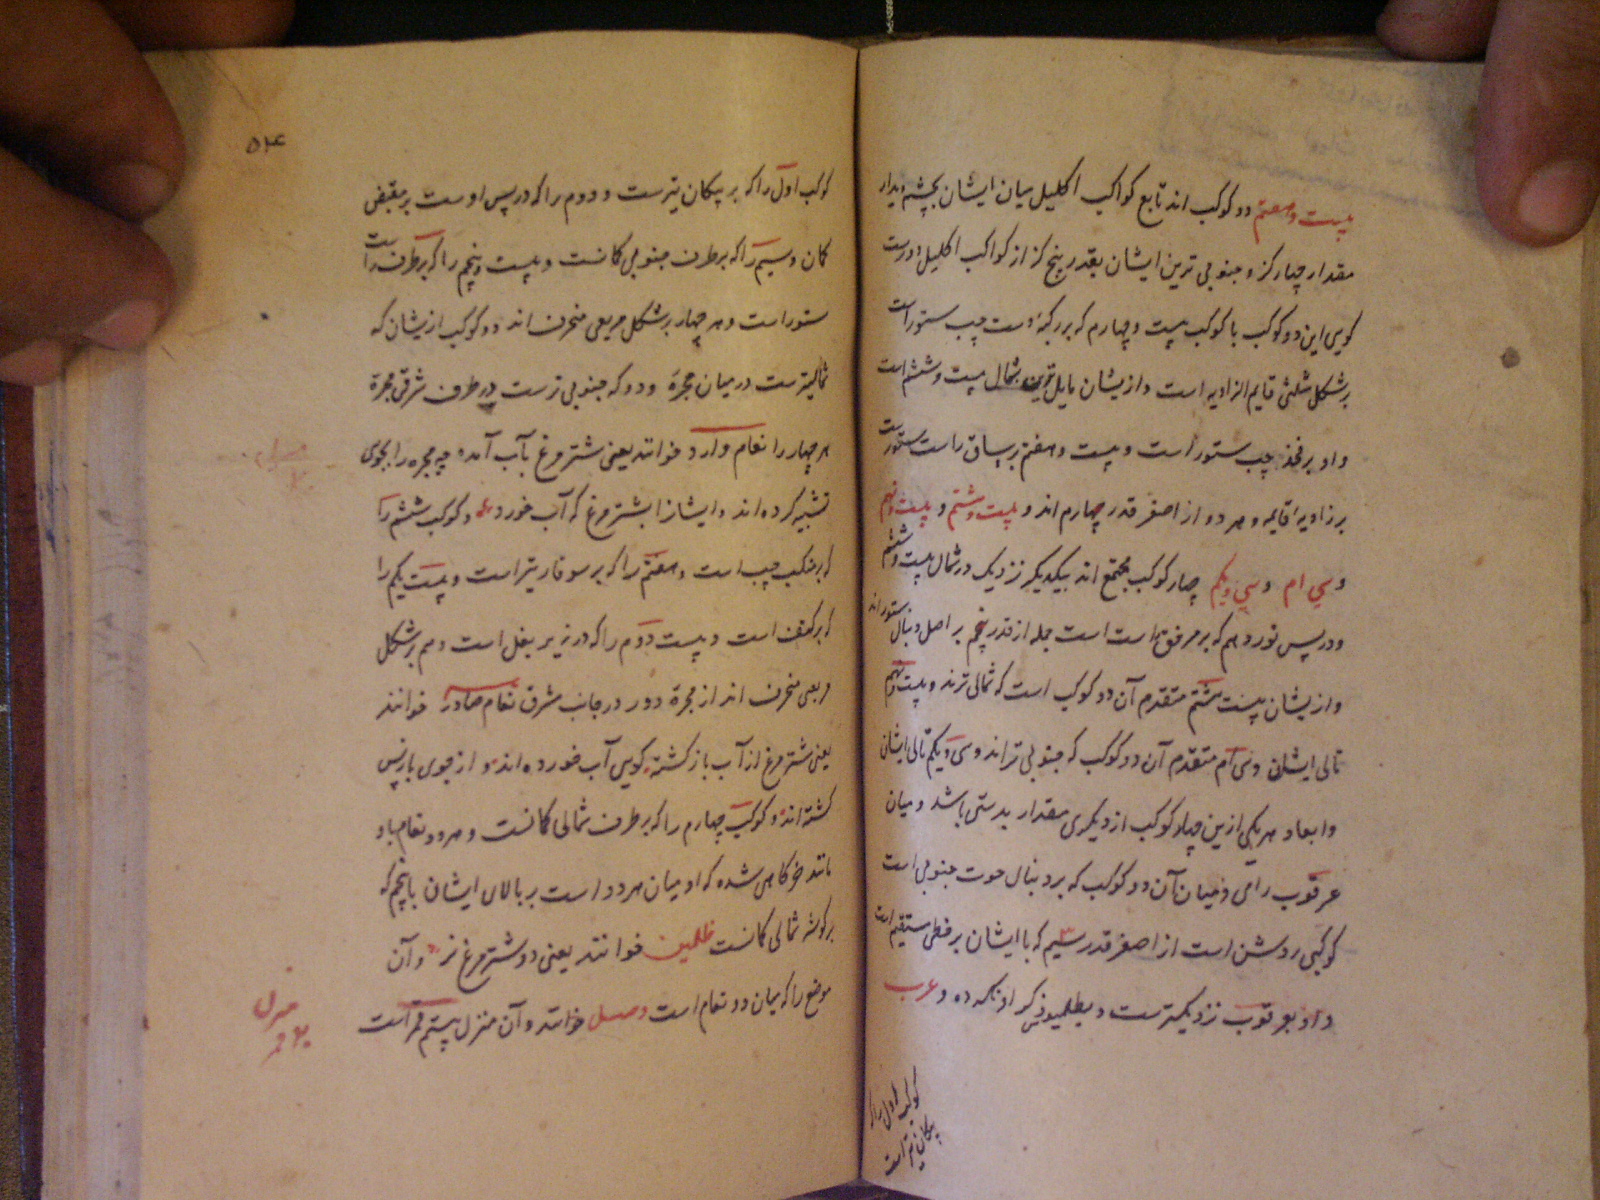 بیست و هفتم دو کوکب اند تابع کواکب اکلیل میان ایشان بچشم دیدار
مقدار چهار کز و جنوبی ترین ایشان بقدر پنج کز از کواکب اکلیل دورست
کویی این دو کوکب با کوکب بیست و چهارم که بر رکبهٔ دست چپ ستورست
بر شکل مثلثی قایم الزاویه است و ازیشان مایل ترین بشمال بیست و ششم است
و او بر فخذ چپ ستور است و بیست و هفتم بر ساق راست ستورست
بر زاویه قایمه و هر دو از اصغر قدر چهارم اند و بیست و هشتم و بیست و نهم
و سی ام و سی و یکم چهار کوکب مجتمع اند بیکدیکر نزدیک در شمال بیست و ششم
و در پس نوردهم که بر مرفق راست است جمله از قدر پنجم بر اصل دنبال ستور اند
و ازیشان بیست هشتم متقدم آن دو کوکب است که شمالی ترند و بیست و نهم
تالی ایشان و سی ام متقدم آن دو کوکب که جنوبی تر اند و سی و یکم تالی ایشان
و ابعاد هر یکی ازین چهار کوکب از دیکری مقدار بدستی باشد و میان
عرقوب رامی و میان آن دو کوکب که بر دنبال حوت جنوبی است
کوکبی روشن است از اصغر قدر سیم که با ایشان بر خطی مستقیم است
و او بعرقوب نزدیکترست و بطلمیوس ذکر او نکرده و عرب
کوکب اول را که
پیکان تیر است
۵۲۴
کوکب اول را که بر پیکان تیرست و دوم را که در پس اوست بر مقبض
کمان و سیم را که بر طرف جنوبی کمانست و بیست و پنجم را که بر طرف دست راست
ستور است و هر چهار بر شکل مربعی منحرف اند دو کوکب ازیشان که
شمالیترست در میان مجرة و دو که جنوبی ترست در طرف شرقی مجرة
هر چهار را نعام وارد خوانند یعنی شتر مرغ بآب آمده چه مجره را بجوی
تشبیه کرده اند و ایشانرا بشتر مرغ که آب خورد و کوکب ششم را
که بر منکب چپ است و هفتم را که بر سوفار تیر است و بیست یکم را
که بر کتف است و بیست دوم را که در زیر بغل است و هم بر شکل
مربعی منحرف اند از مجرة دور در جانب مشرق نعام صادر خوانند
یعنی شتر مرغ از آب باز کشته کویی آب خورده اند و از جوی باز پس
کشته اند و کوکب چهارم را که بر طرف شمالی کمانست و هر دو نعام با او
مانند خرکاهی شده که او میان هر دو است بر بالای ایشان با پنجم که
بر کوشه شمالی کمانست ظلمین خوانند یعنی دو شتر مرغ نر و آن
موضع را که میان دو نعام است وصل خوانند و آن منزل بیستم قمر است
منزل